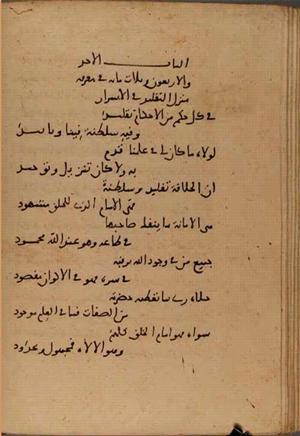 الباب الاحد
والاربعون وثلاث مائة في معرفة
منزل التقليد في الاسرار
في كل حكم من الاحكام تقليد
وفيه سلطنة فينا وتاييد
لولاه ما كان لي في علمنا قدم
به ولا كان تنزيل وتوحيد
ان الخلافة تقليد وسلطنة
هي الامام الذي للخلق مشهود
هي الامانة ما ينفك صاحبها
في طاعة وهو عند الله محمود
جميع من في وجود الله يرقبه
في سره فهو في الاكوان مقصود
من الصفات فما في العلم موجود
سواه فهو امام الخلق كلهم
وهو الاله فمجهول ومحدود